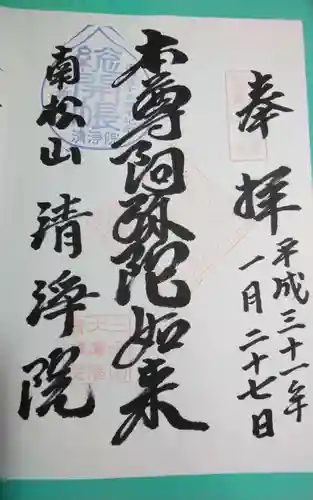 奉拝
平成三十一年
一月二十七日
本尊阿弥陀如来
南松山
清浄院